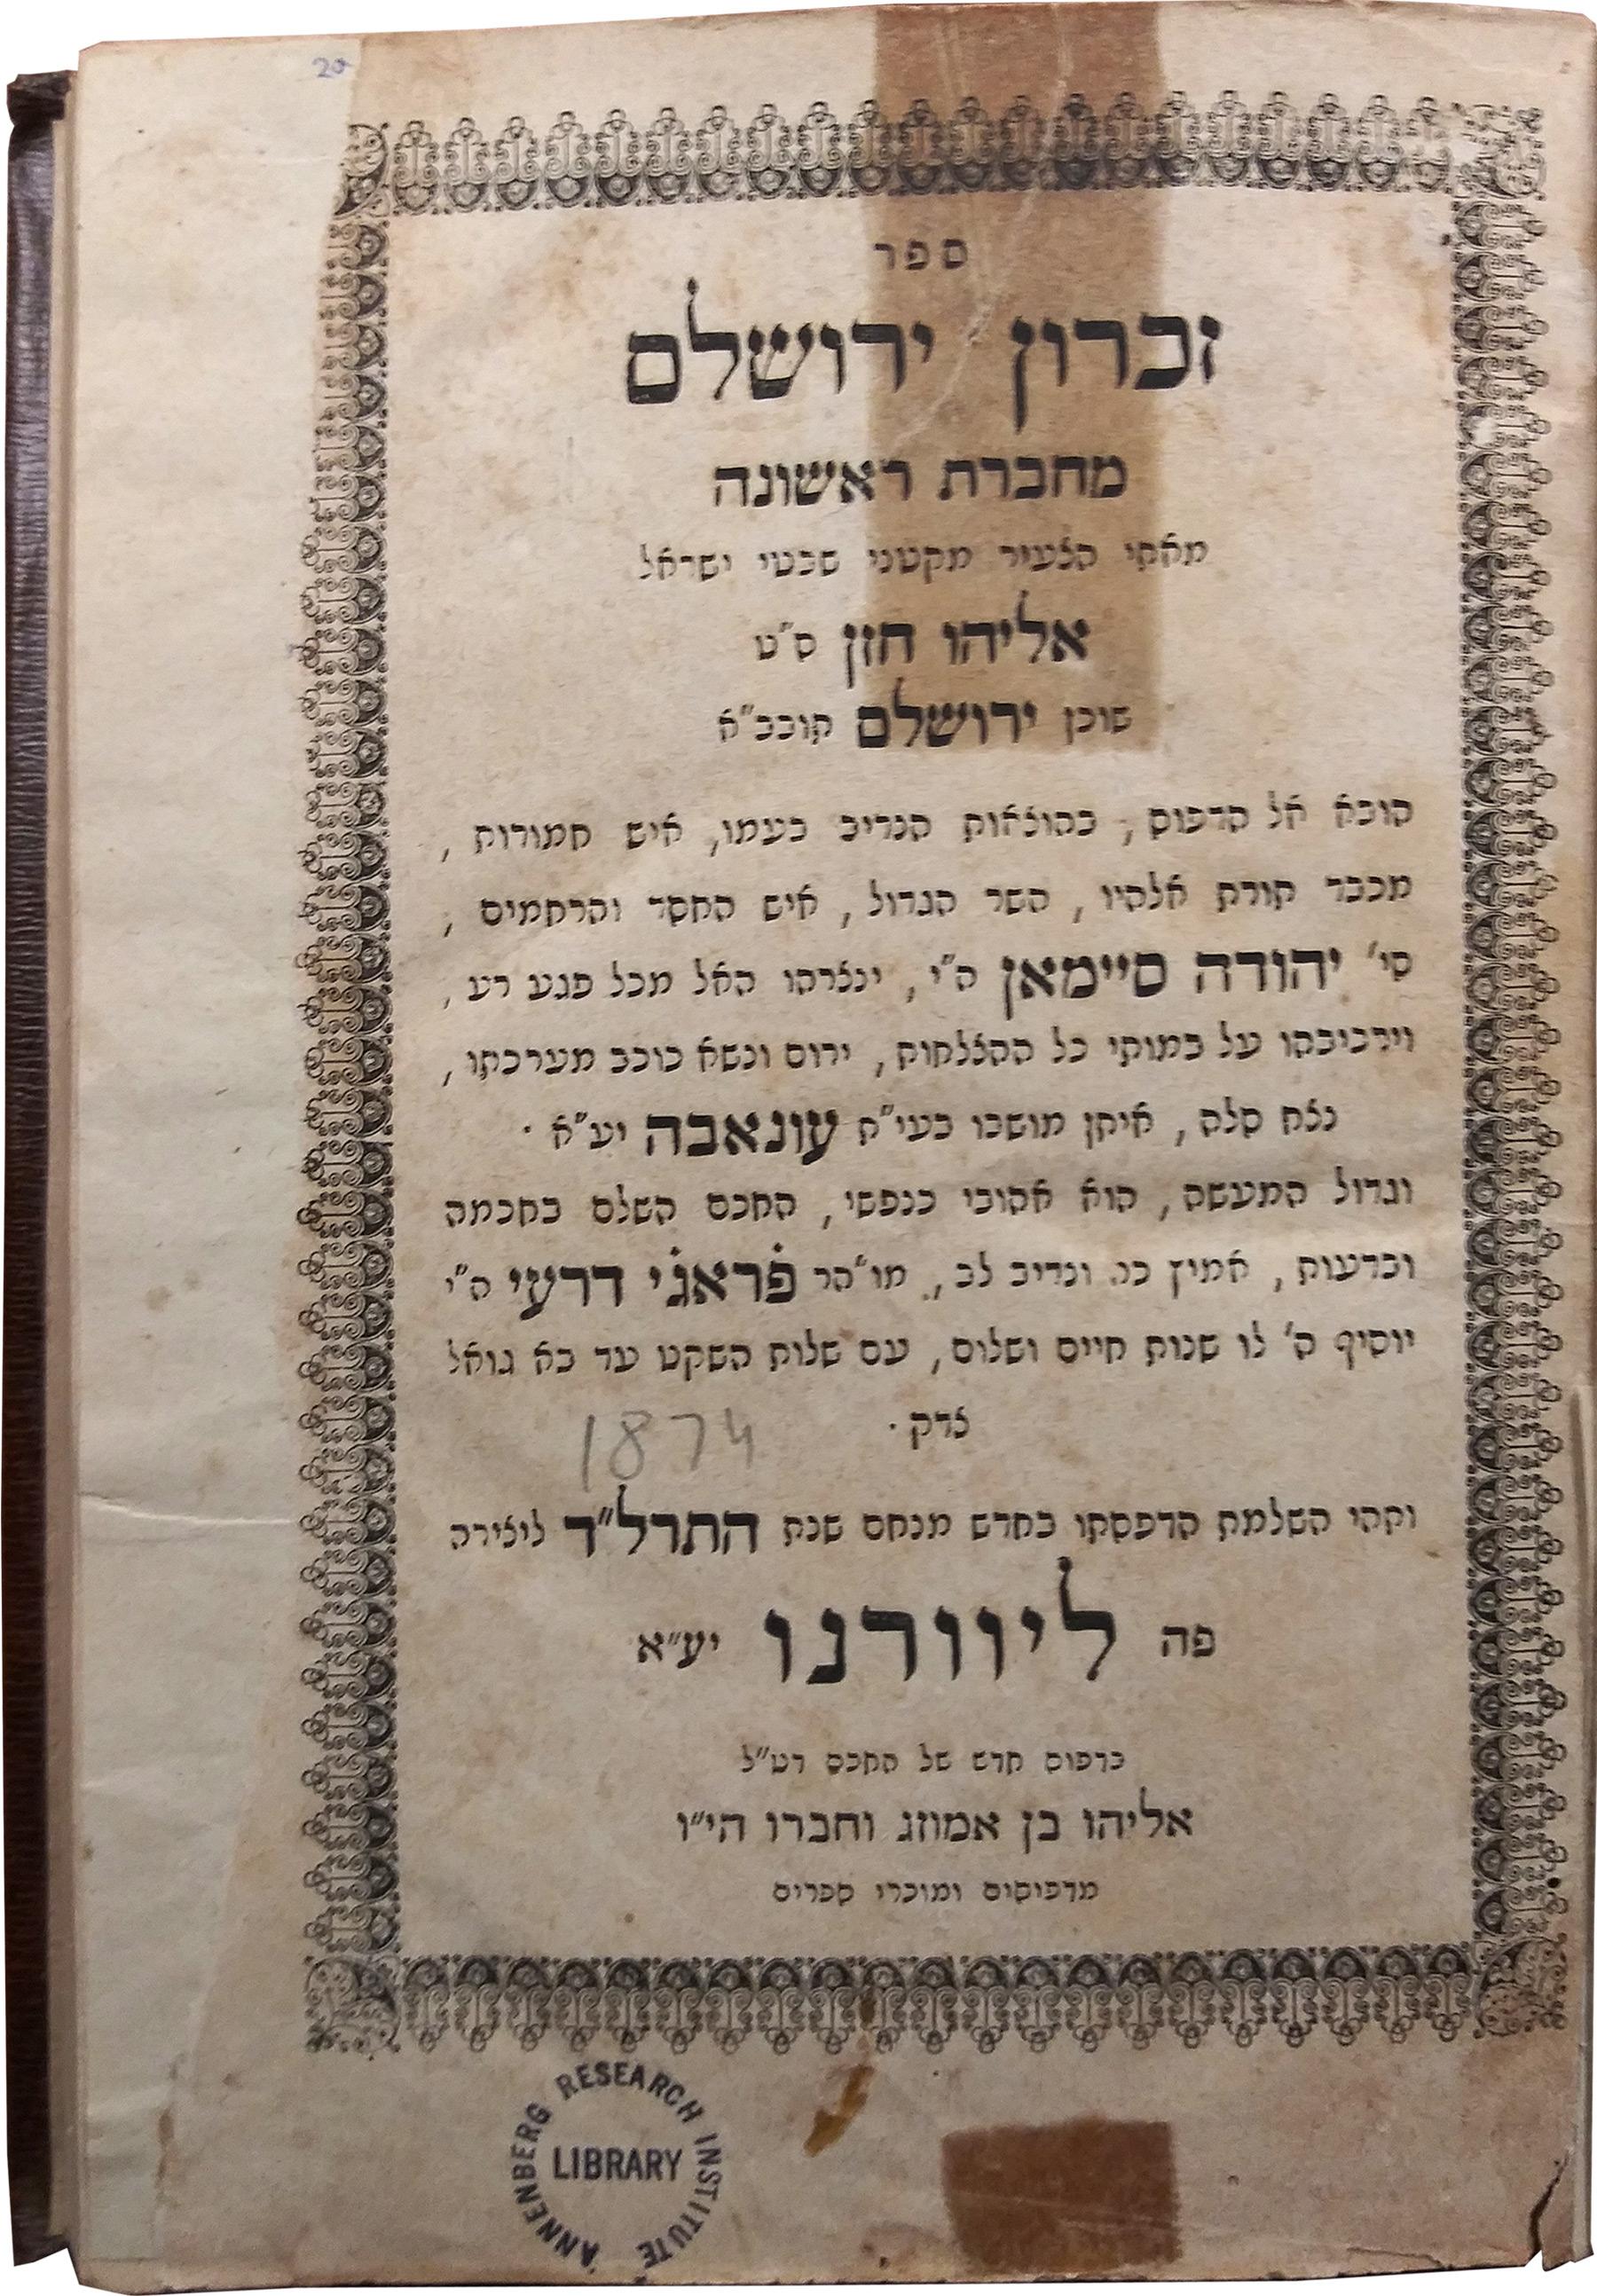 20
ספר
זכרון ירושלם
מחברת ראשונה
מאתי הצעיר מקטני שבטי ישראל
אליהו חזן ס״ט
שוכן ירושלם תובב״א
הובא אל הדפוס, בהוצאות הנדיב בעמו, איש חמודות,
מכבד תורת אלהיו, השר הגדול, איש החסד והרחמים,
סי׳ יהודה סיימאן ה״י, ינצרהו האל מכל פגע רע,
וירכיבהו על במותי כל ההצלחות, ירום ונשא כוכב מערכתו,
נצח סלה, איתן מושבו בעי״ת עונאבה יע״א.
וגדול המעשה, הוא אהובי כנפשי, החכם השלם בחכמה
ובדעות, אמיץ כח ונדיב לב, מו״הר פ׳ראג׳י דרעי ה״י
יוסיף ה׳ לו שנות חיים ושלום, עם שלות השקט עד בא גואל
צדק.
1874
ותהי השלמת הדפסתו בחדש מנחם שנת התרל״ד ליצירה
פה ליוורנו יע״א
בדפוס חדש של החכם רט״ל
אליהו בן אמוזג וחברו הי״ו
מדפיסים ומוכרי ספרים
ANNENBERG RESEARCH INSTITUTE
LIBRARY